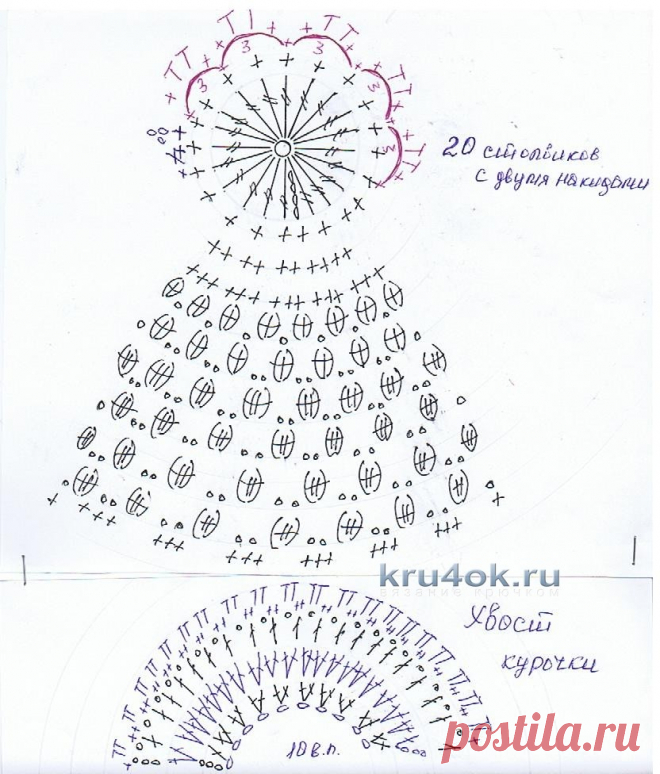 3
3
3
3
3
20 столбиков
с двумя накидами
kru4ok.ru
вязание крючком
Хвост
курочки
10 в.п.
postila.ru